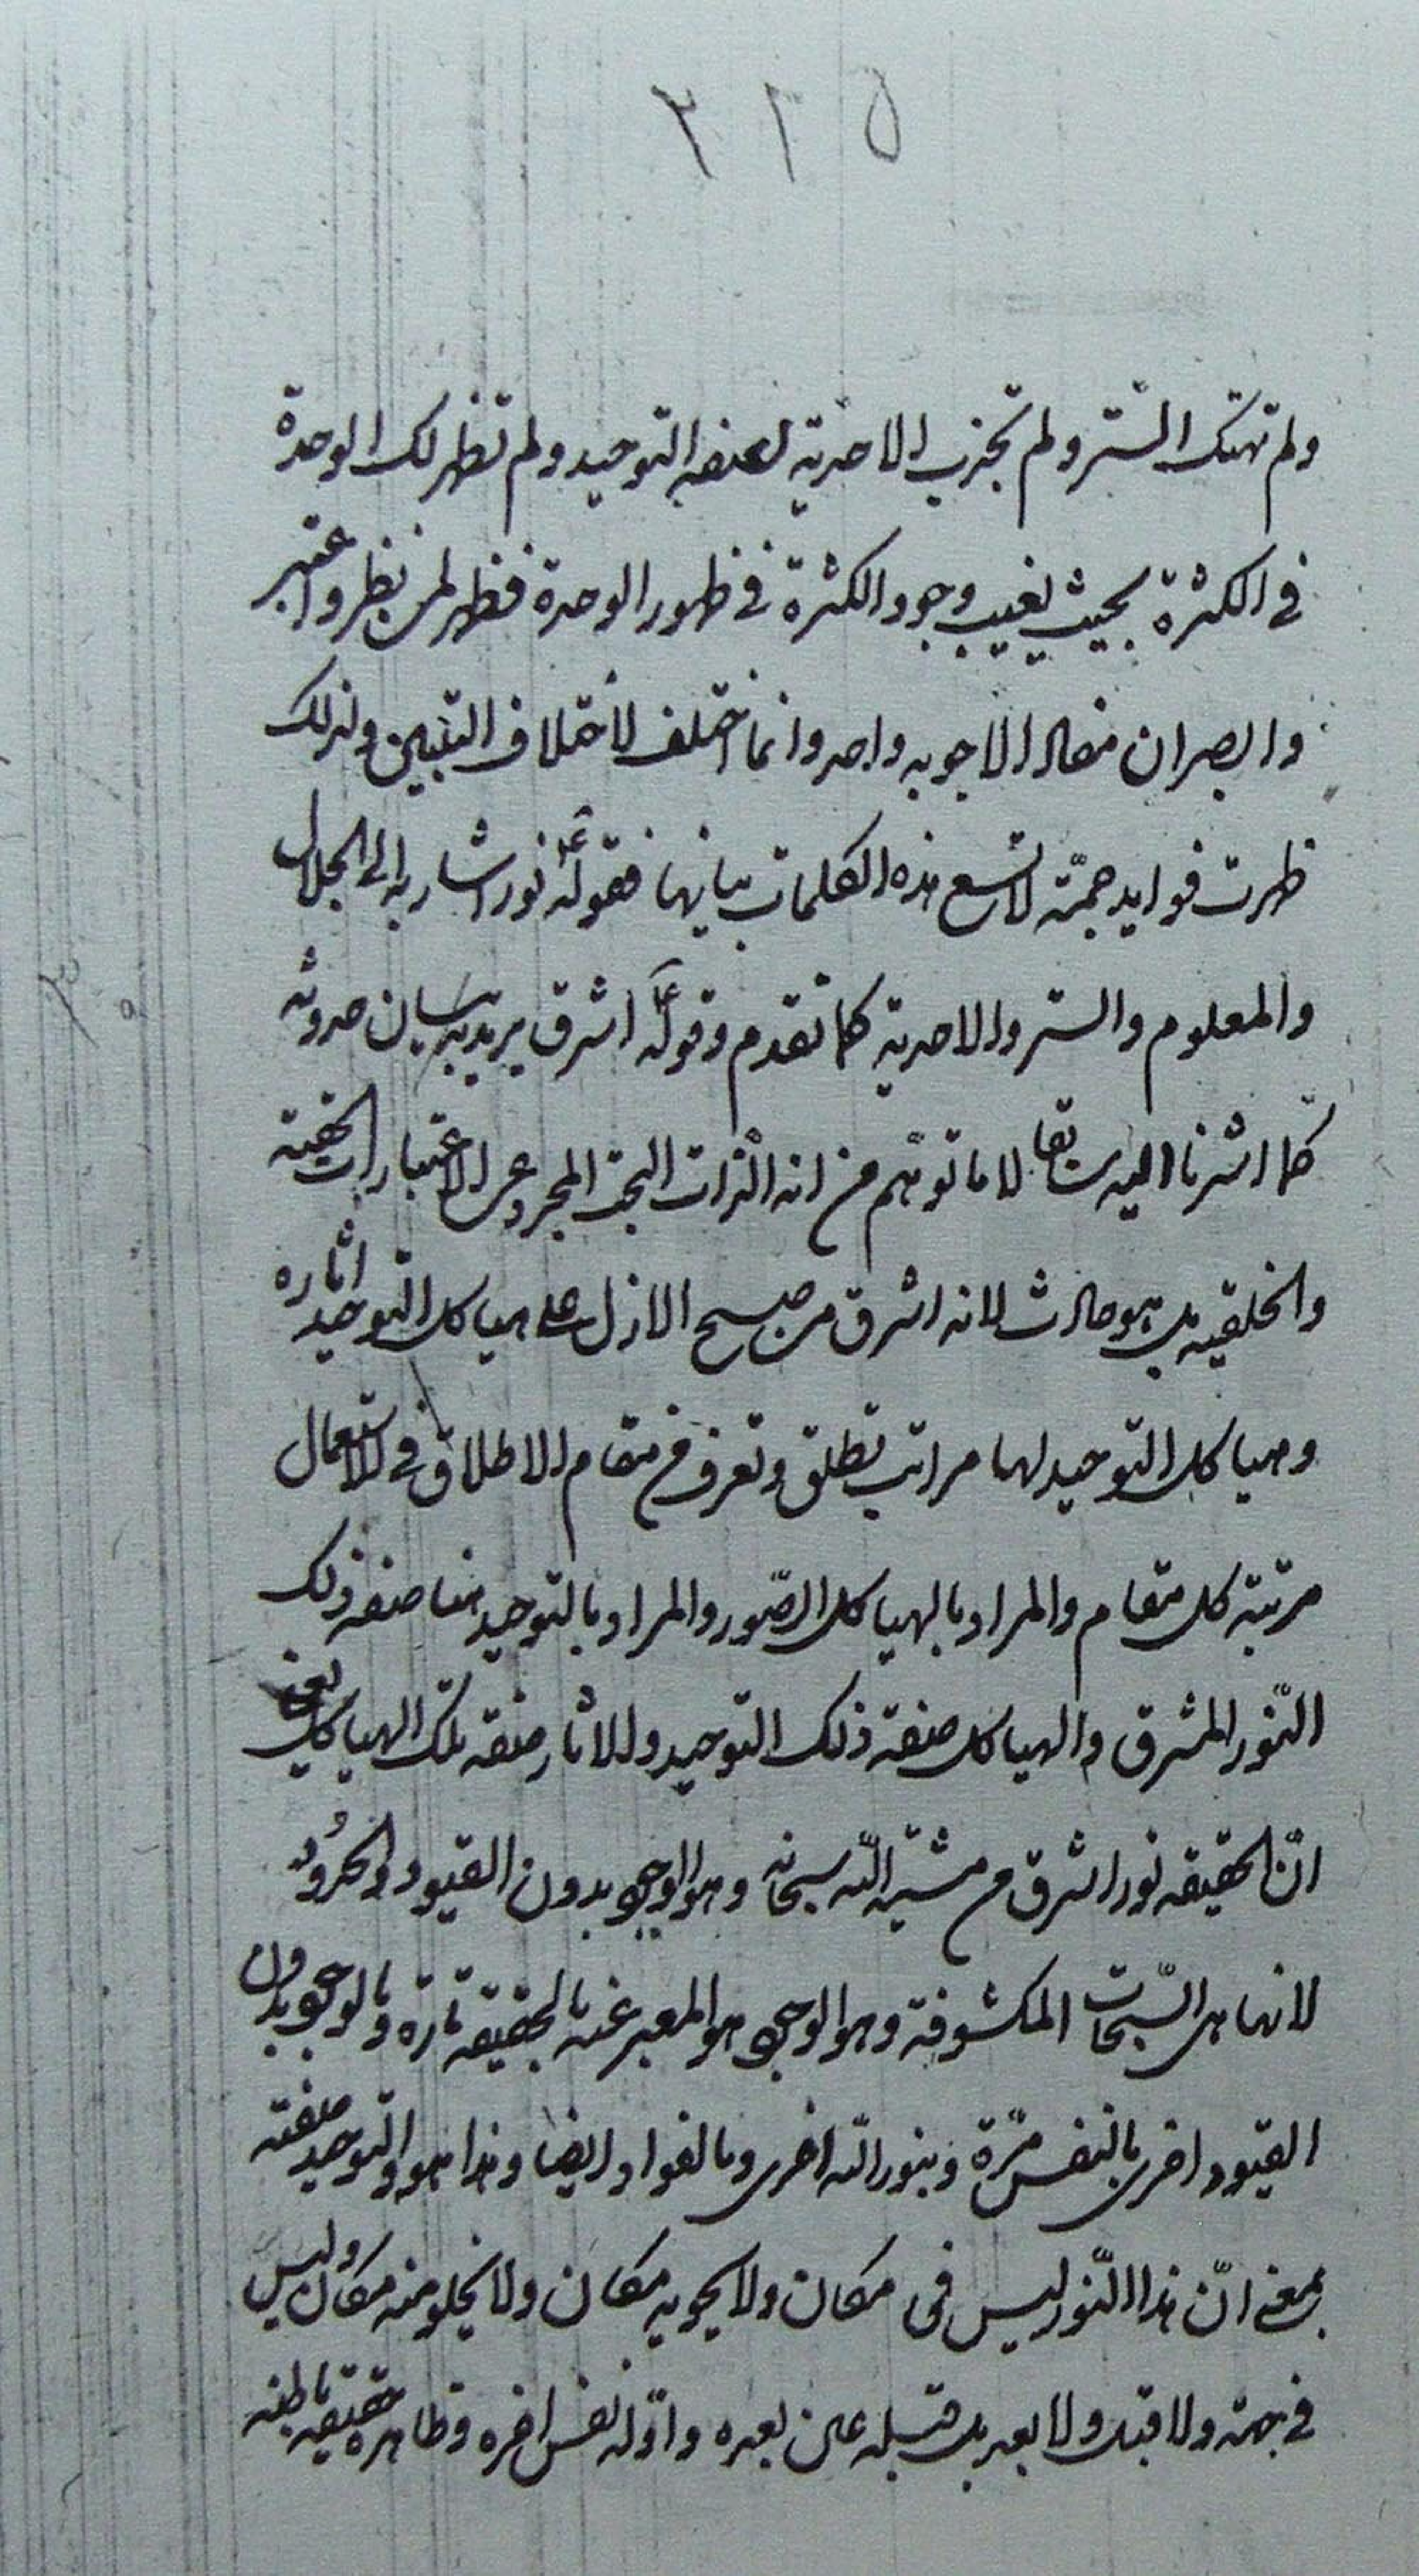 ٢٣٥
ولم تهتك الستر ولم تجذب الاحدية لصفة التوحيد ولم تظهر لك الوحدة
في الكثرة بحيث يغيب وجود الكثرة في ظهور الوحدة فظهر لمن نظر واعتبر
وابصر ان مفاد الاجوبه واحد وانما اختلف لاختلاف التبيين ولذلك
ظهرت فوايد جمّة لا تسع هذه الكلمات بيانها فقوله ع نور اشار به الى الجلال
والمعلوم والستر والاحدية كما تقدم وقوله ع اشرق يريد به بيان حدوثه
كما اشرنا اليه سابقا لا ما توهّم من انه الذات البحت المجرد عن الاعتبارات الحقية
والخلقيه بل هو حادث لانه اشرق من صبح الازل على هياكل التوحيد اثاره
وهياكل التوحيد لها مراتب تطلق وتعرف من مقام الاطلاق في الاستعمال
مرتبة كل مقام والمراد بالهياكل الصّور والمراد بالتوحيد هنا صفة ذلك
النّور المشرق والهياكل صفة ذلك التوحيد والاثار صفة تلك الهياكل يعني
انّ الحقيقه نور اشرق من مشيّة اللّه سبحانه وهو الوجود بدون القيود والحدُود
لانها هى السّبحات المكشوفة وهو الوجود هو المعبر عنه بالحقيقه تارة وبالوجود بدون
القيود اخرى بالنفس مرّة وبنور اللّه اخرى وبالفواد ايضا وهذا هو التوحيد صفته
بمعنى انّ هذا النّور ليس فى مكان ولا يحويه مكان ولا يخلو منه مكان وليس
في جهة ولا قبل ولا بعد بل قبله عين بعده واوّله نفس اخره وظاهره حقيقه باطنه